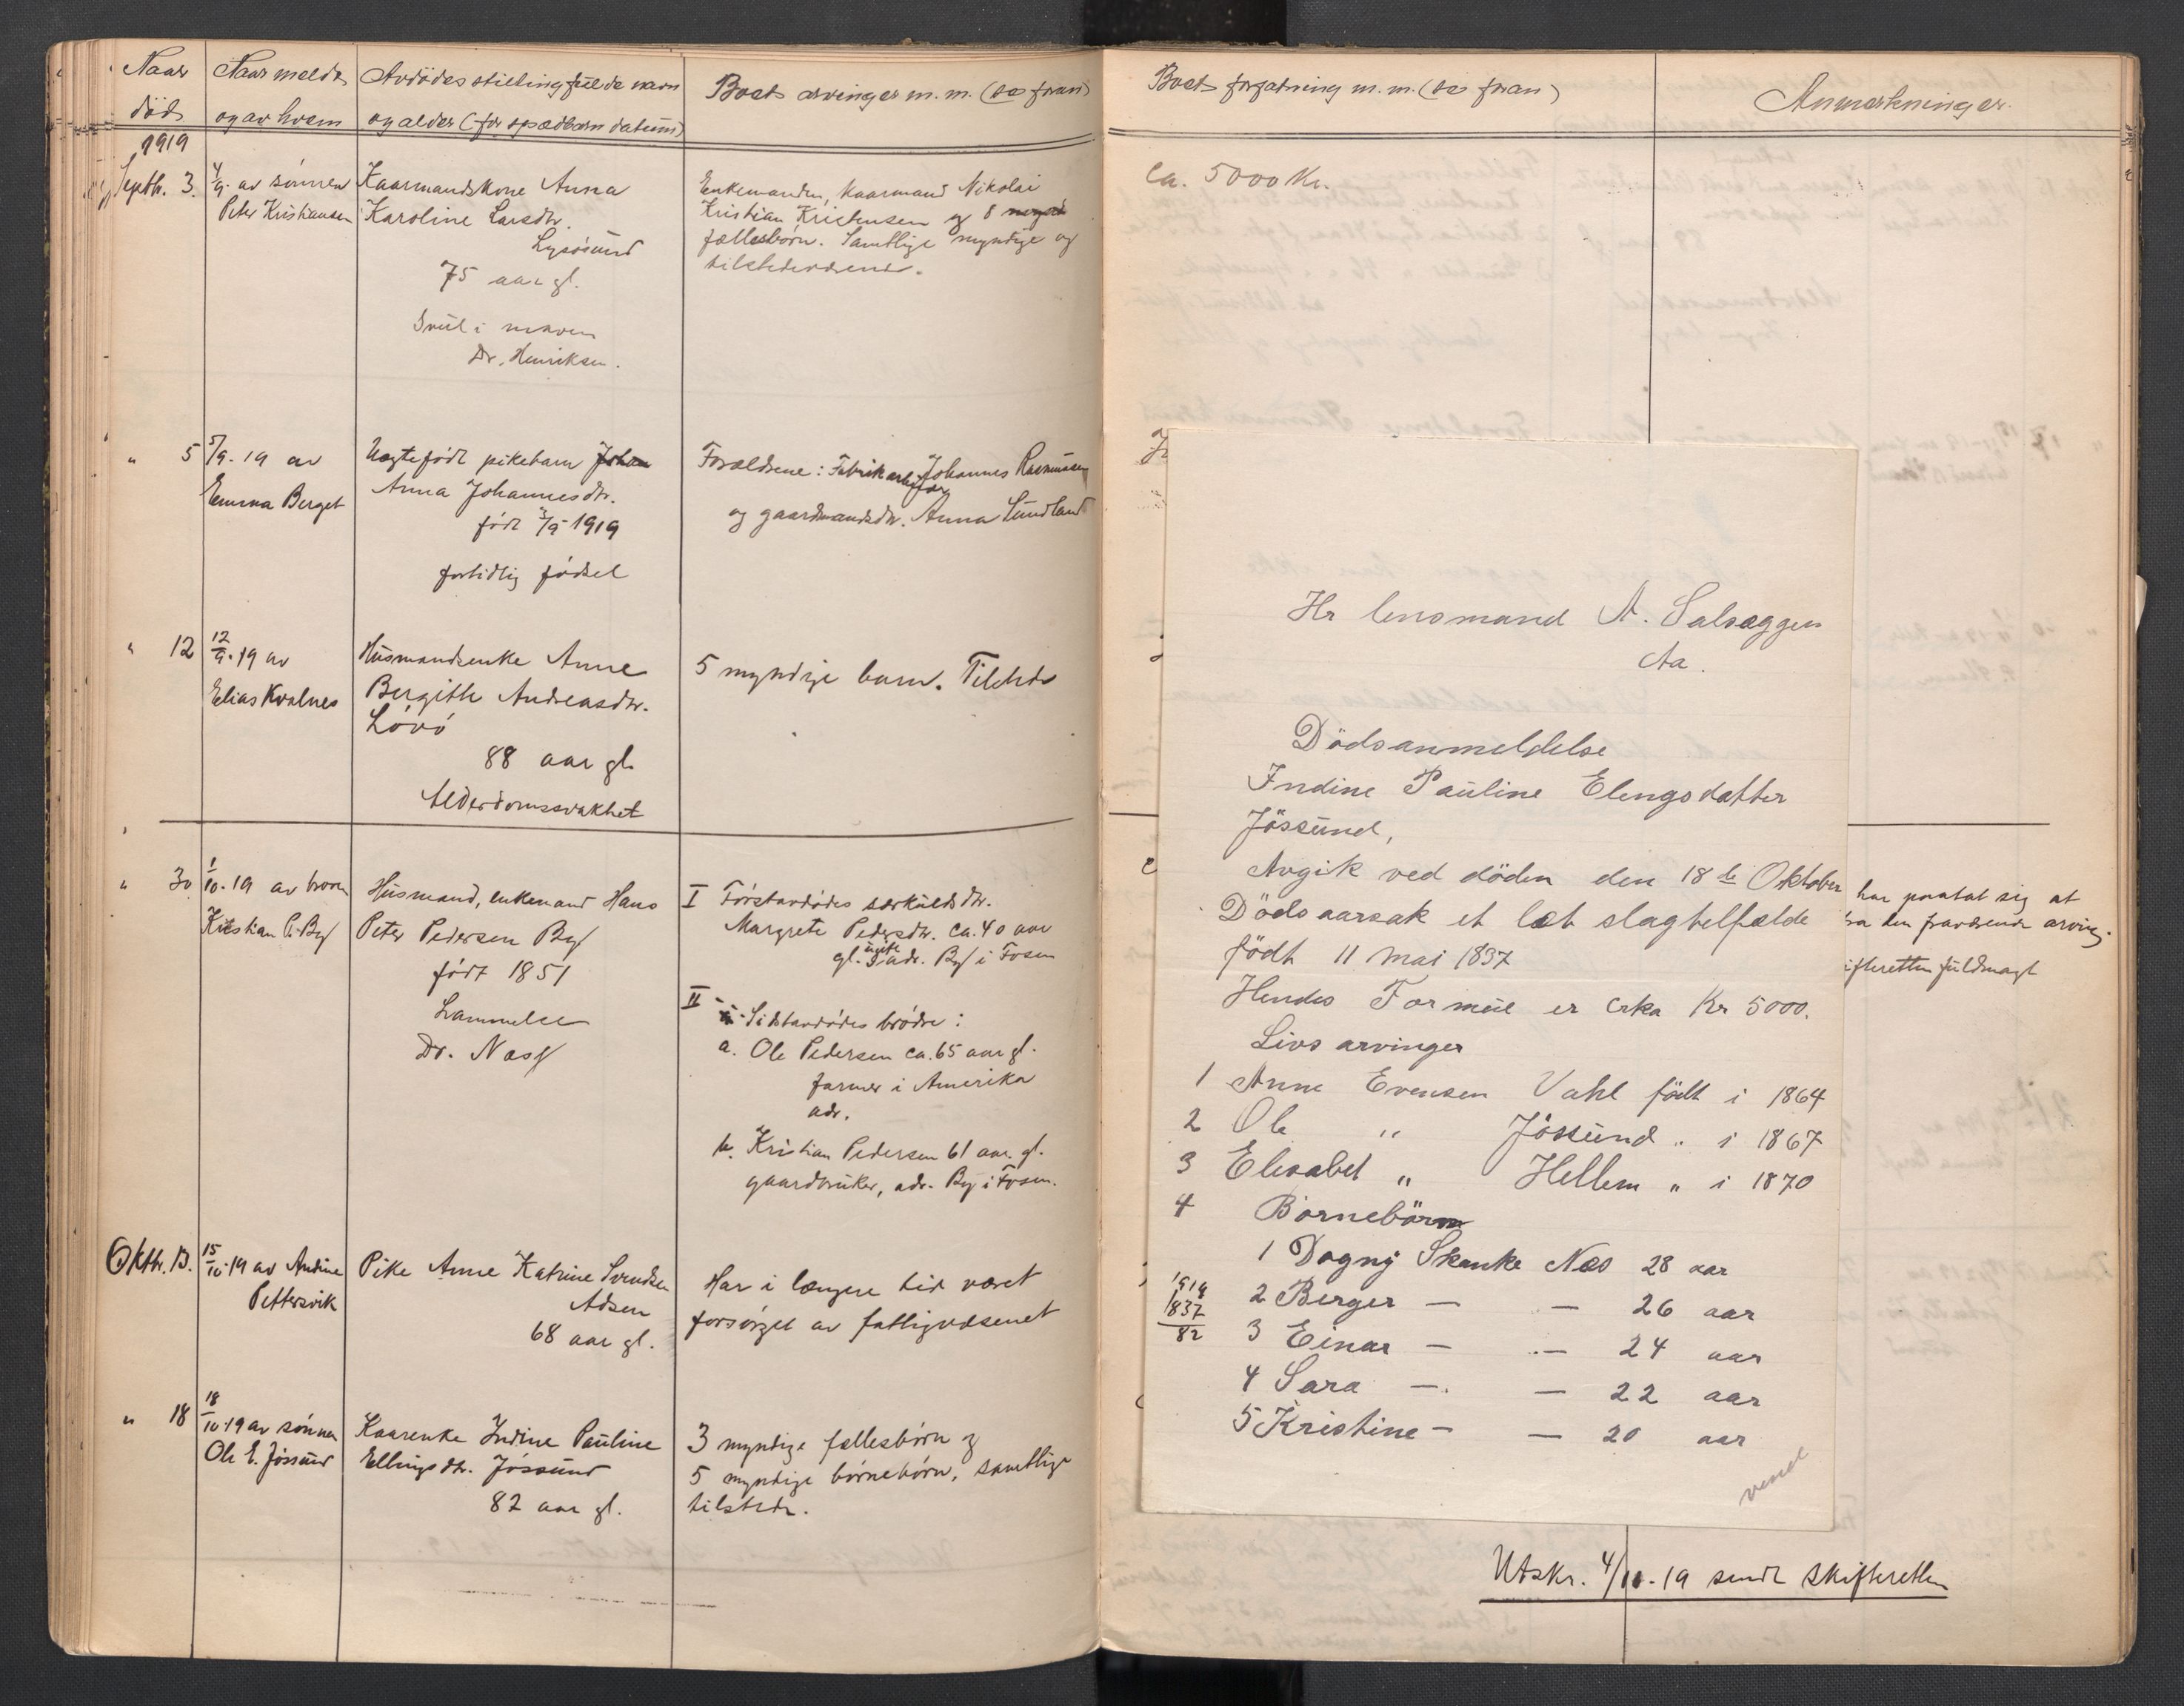 Naar
død
Naar meldt
og av hvem
Avdødes stilling fulde navn
og alder (for spædbarn datum)
Boets arvinger m. m. (se foran)
1919
Septb. 3.
4/9. av sønnen
Peter Kristiansen
Kaarmandskone Anna
Karoline Larsdtr.
Lysøsund
75 aar gl.
Svul i maven
Dr. Henriksen.
Enkemanden, kaarmand Nikolai
Kristian Kristensen og 8
fællesbørn. Samtlige myndige og
tilstedeværende.
" 5
5/9. 19 av
Emma Berget
Uegtefødt pikebarn Johan
Anna Johannesdtr.
født 3/9 1919
fortidlig fødsel
Forældrene: Fabrikarbeider Johannes Rasmussen
og gaardmandsdtr. Anna Sundland
" 12
12/9. 19 av
Elias Kvalnes
Husmandsenke Anne
Bergitte Andreasdtr.
Løvø
88 aar gl.
Alderdomssvakhet
5 myndige barn. Tilstede
" 30
1/10. 19 av broren
Kristian P. By
Husmand, enkemand Hans
Peter Pedersen By
født 1851
Lammelse
Dr. Næss
I Førstavdødes særkuldsdtr.
Margrete Pedersdtr. ca. 40 aar
gl. ugift adr. By i Fosen
II Sidstavdødes brødre:
a. Ole Pedersen ca. 65 aar gl.
farmer i Amerika
adr.
b. Kristian Pedersen 61 aar gl.
gaardbruker, adr. By i Fosen.
Oktbr. 13.
15/10. 19 av Andine
Pettersvik
Pike Anne Katrine Svendsen
Adsen
68 aar gl.
Har i længere tid været
forsørget av fattigvæsenet
" 18
18/10. 19 av sønnen
Ole E. Jøssund
Kaarenke Indine Pauline
Ellingsdtr. Jøssund
82 aar gl.
3 myndige fællesbørn og
5 myndige børnebørn, samtlige
tilstede.
Boets forfatning m. m. (se foran)
Anmerkninger.
Ca. 5000 Kr.
Hr lensmand A. Salvaggen
Aa.
Dödsanmeldelse
Indine Pauline Elengsdatter
Jössund,
Avgik ved döden den 18de Oktober
Dödsaarsak et let slagtelfælde
födt 11 mai 1837
Hendes Formue er cirka Kr 5000.
Livsarvinger
1 Anne Evensen Vahl födt i 1864
2 Ole " Jössund " i 1867
3 Elesabet " Hellem " i 1870
4 Börnebörn
1 Dagny Skanke Næs 28 aar
2 Berger — — 26 aar
3 Einar — — 24 aar
4 Sara — — 22 aar
5 Kristine — — 20 aar
1919
1837
82
vend
har paatat sig at
fra den fraværende arving.
ifteretten fuldmagt
Utskr. 4/11.-19 sendt skifteretten